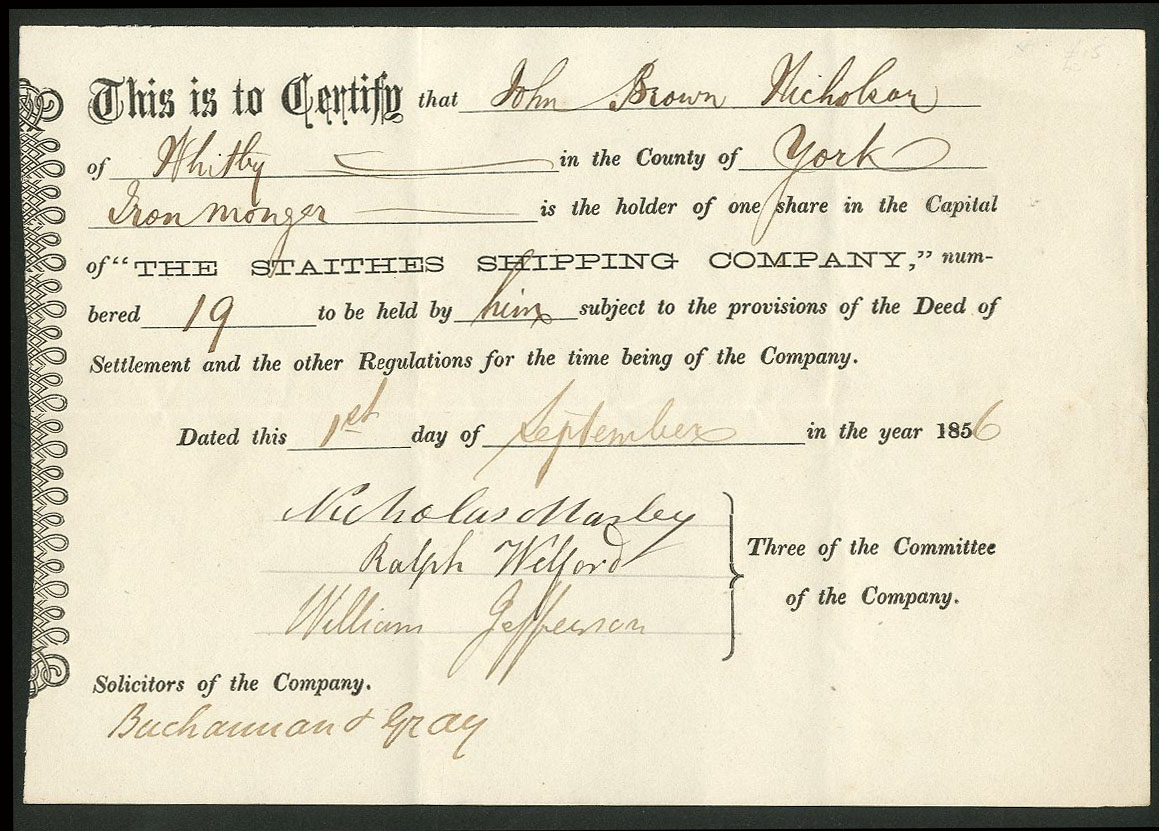 This is to Certify that John Brown Nicholson
of Whitby in the County of York
Iron monger is the holder of one share in the Capital
of “THE STAITHES SHIPPING COMPANY,” num-
bered 19 to be held by him subject to the provisions of the Deed of
Settlement and the other Regulations for the time being of the Company.
Dated this 1st day of September in the year 1856
Nicholas Marley
Ralph Welford
William Jefferson
Three of the Committee
of the Company.
Solicitors of the Company.
Buchannan & Gray